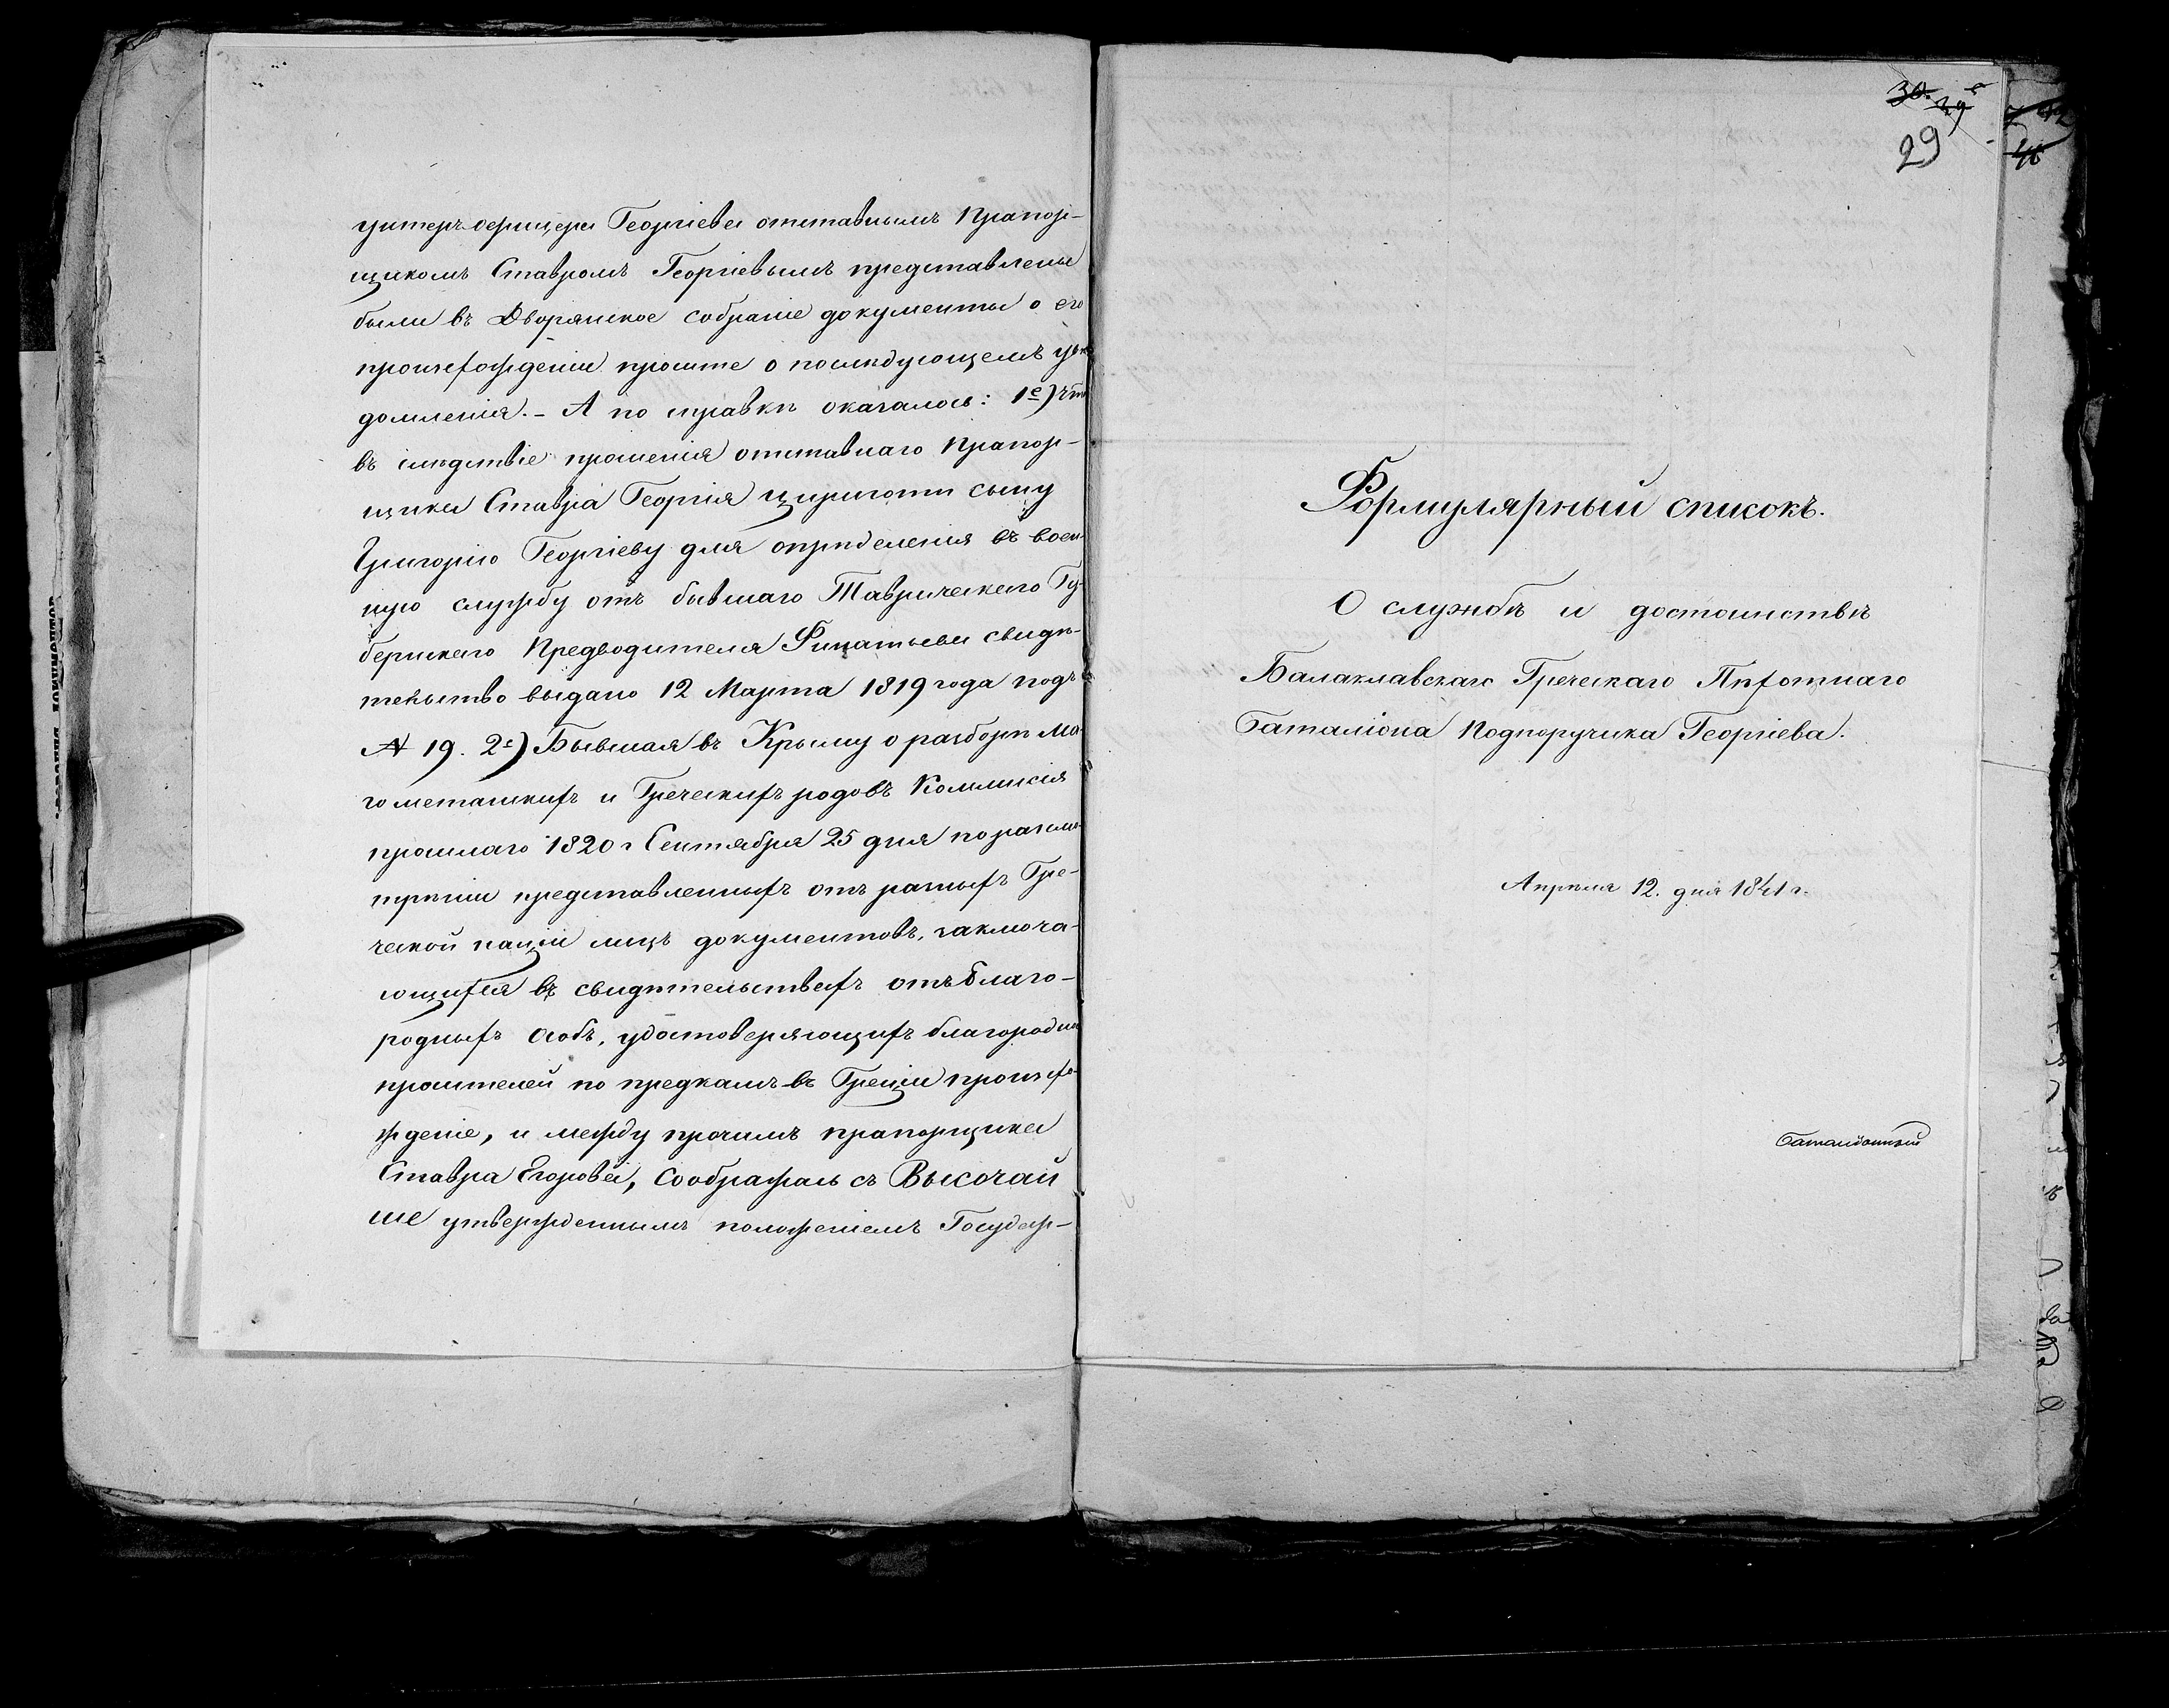 унтеръ-офицера Георгіева отставнымъ Прапор-
щикомъ Ставромъ Георгіевымъ представлены
были въ Дворянское собраніе документы о его
происхожденіи просите о послѣдующемъ увѣ
домленія. - А по справкѣ оказалось: 1е) что
въ слѣдствіе прошенія отставнаго Прапор-
щика Ставра Георгія Цириготи сыну
Григорію Георгіеву для опредѣленія въ воен-
ную службу отъ бывшаго Таврическаго Гу-
бернскаго Предводителя свидѣ-
тельство выдано 12 Марта 1819 года подъ
№ 19. 2е) Бывшая въ Крыму о разборѣ Ма-
гометанскихъ и Греческихъ родовъ Коммисія
прошлаго 1820 г Сентября 25 дня по разсмо-
трѣніи представленныхъ отъ разныхъ Гре-
ческой націи лицъ документовъ, заключа-
ющихся въ свидѣтельствахъ отъ благо-
родныхъ особъ, удостоверяющихъ благородное
просителей по предкамъ въ Греціи происхо-
жденіе, и между прочимъ прапорщика
Ставра Егорова, сообразжась съ Высочай
ше утвержденнымъ положеніемъ Государ-
30. 29
29
Формулярный списокъ.
О службѣ и достоинствѣ
Балаклавскаго Греческаго Пѣхотнаго
баталіона Подпоручика Георгіева.
Апрѣля 12. дня 1841 г.